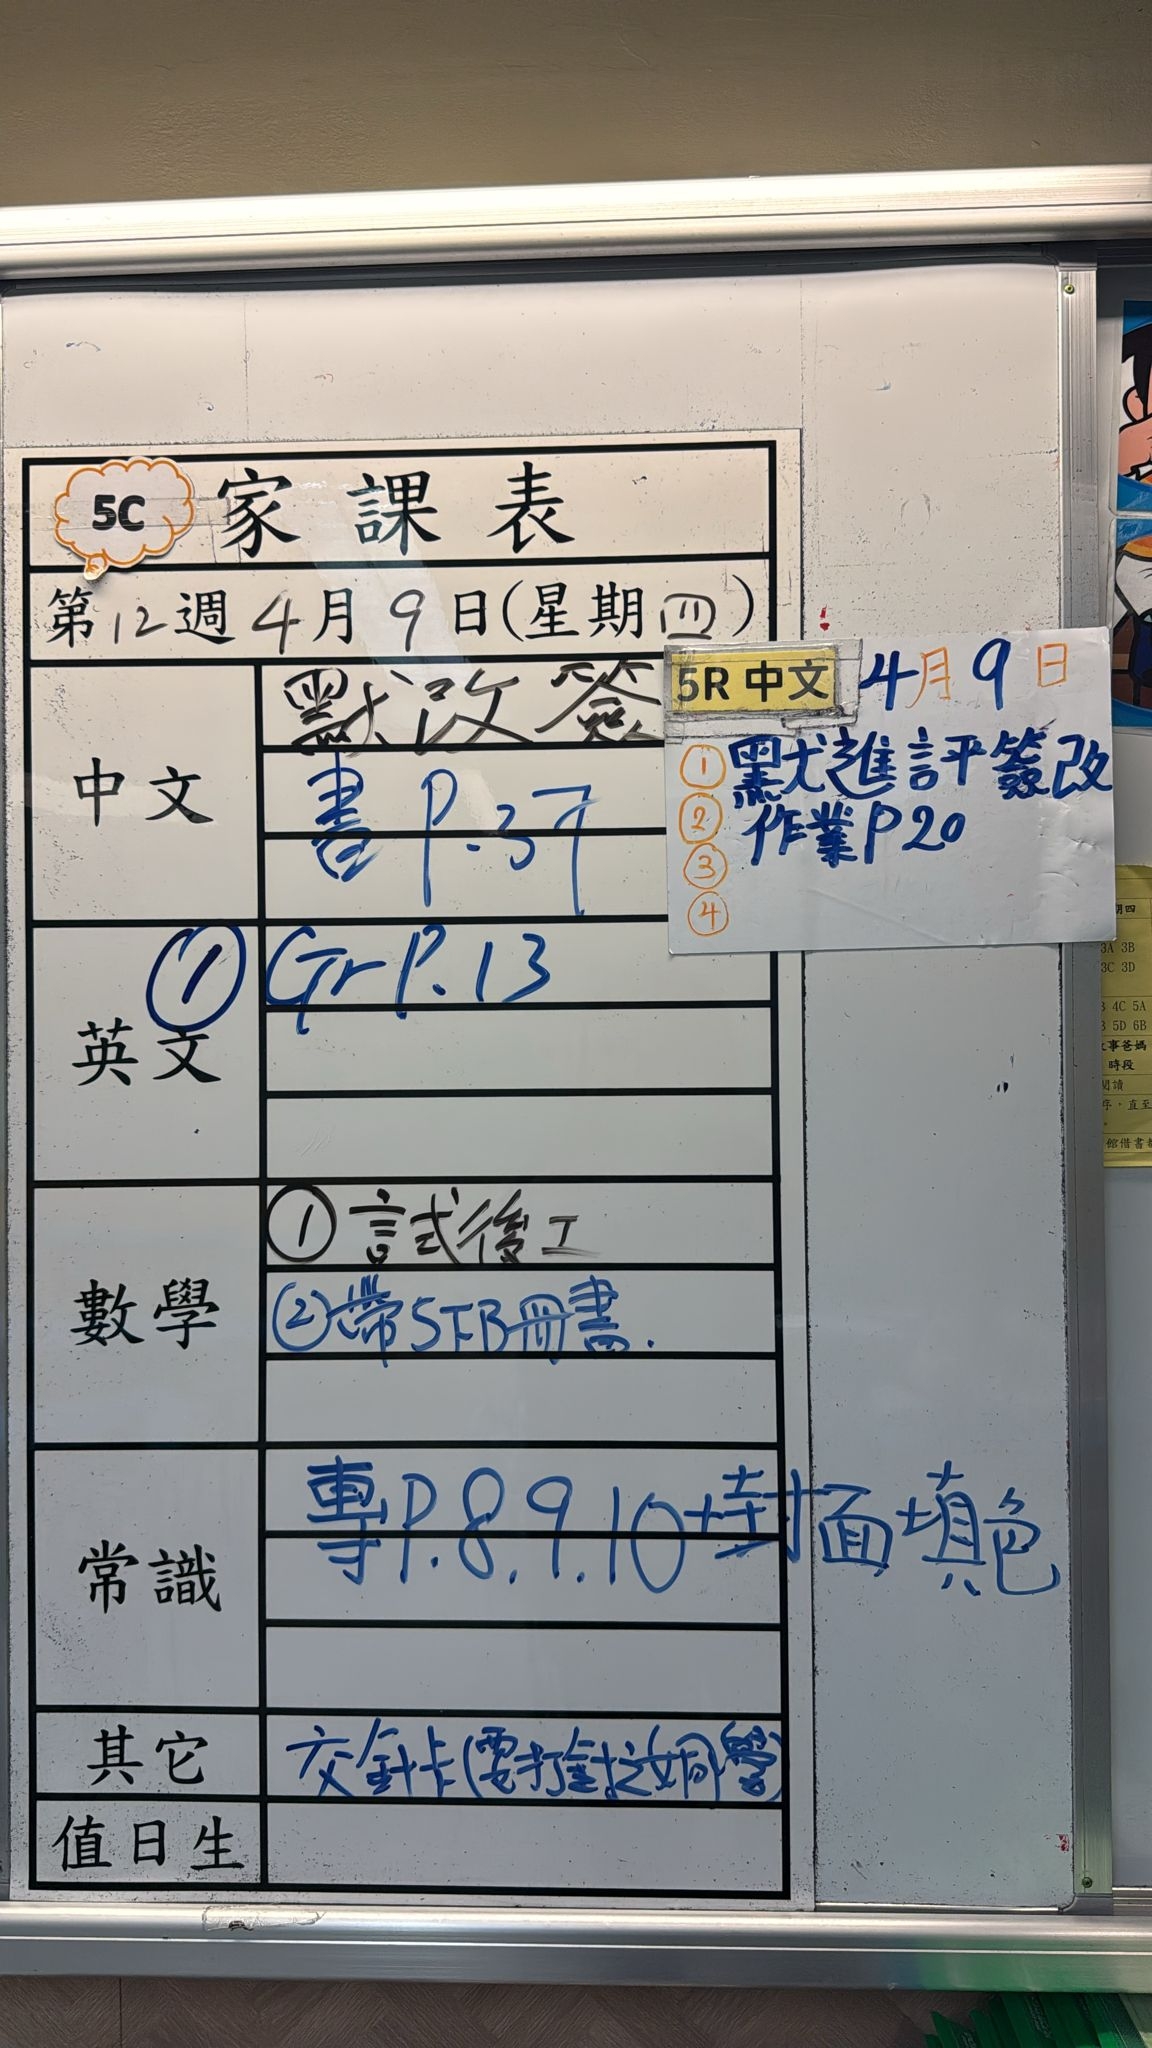 5C 家課表
第12週4月9日(星期四)
中文
默改簽
書 P.37
5R 中文 4月9日
① 默進評簽改
② 作業P20
③
④
英文
① Gr P.13
數學
① 試後工
② 帶5下B冊書.
常識
專P.8.9.10封面填色
其它
交針卡(要打針之同學)
值日生
期四
3A 3B
3C 3D
4C 5A
5D 6B
事爸媽
時段
閱讀
序,直至
館借書